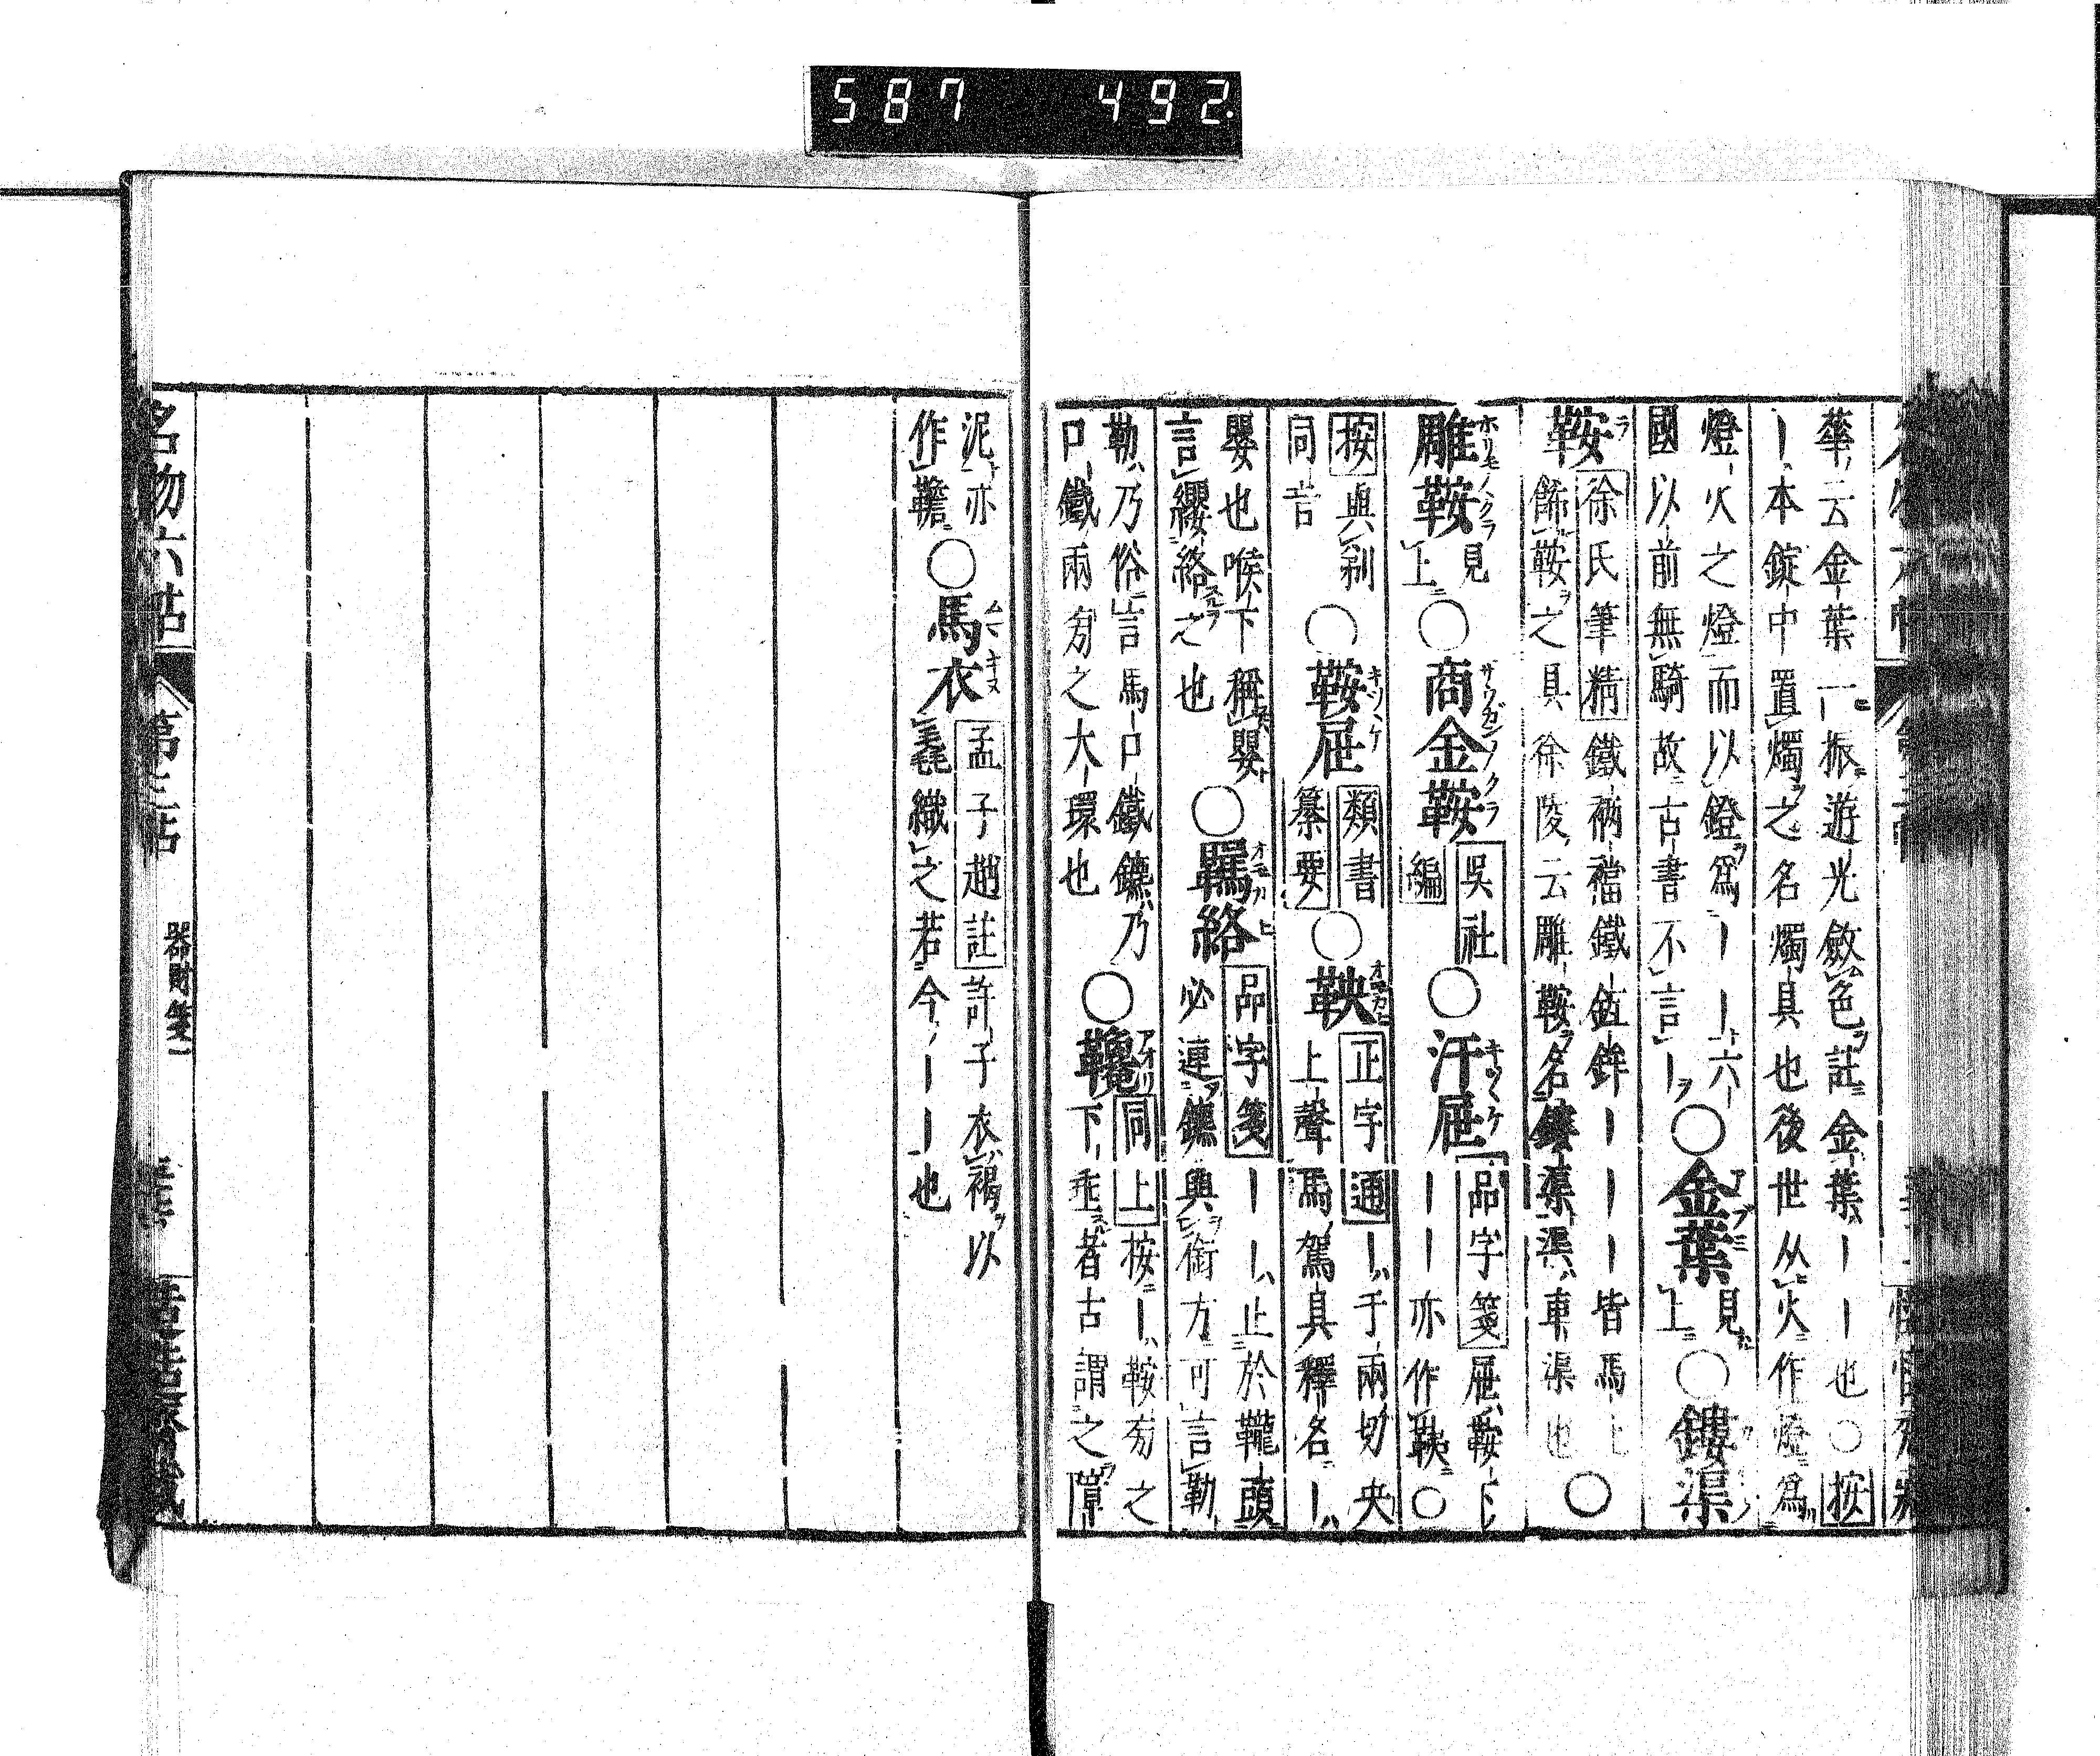 587 492
華云金葉一振遊光斂色註金葉||也○按
|本錠中置燭之名燭具也後世从火作燈爲
燈火之燈而以鐙爲||六|○金葉見
國以前無騎故古書不言|上○鏤渠
鞍徐氏筆精鐵裲襠鐵鉦鉾|||皆馬上
飾鞍之具徐陵云雕鞍名鏤渠渠車渠也○
雕鞍見上○商金鞍吳社編○汗屉品字箋屉鞍下
||亦作鞅○
按與剔
同音○鞍屉類書纂要○鞅正字通|于兩切央
上聲馬駕具釋名|
嬰也喉下稱嬰
言纓絡之也○羈絡品字箋||止於鞴頭
必連鑣與銜方可言勒
勒乃俗言馬口鐵鑣乃
口鐵兩旁之大環也○同上按|鞍旁之
下垂者古謂之障
泥亦
作韂○馬衣孟子趙註許子衣褐以
毳織之若今||也
名物六帖
第三帖
器財箋一